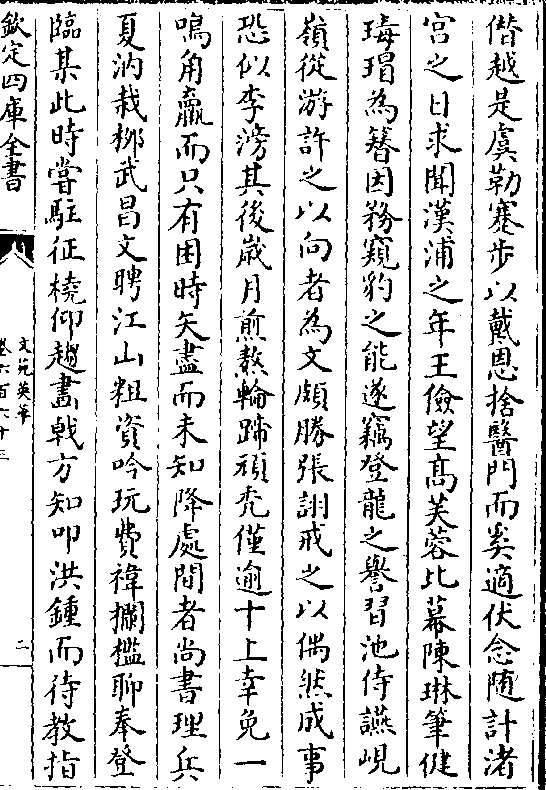 僭越是虞勒蹇步以戴恩捨醫門而奚適伏念随計渚
宮之日求聞漢浦之年王儉望髙芙蓉比幕陳琳筆健
瑇瑁為簪因務窺豹之能遂竊登龍之譽習池侍讌峴
嶺從游許之以向者為文頗勝張詡戒之以偶然成事
恐似李滂其後嵗月煎熬輪蹄頑秃僅逾十上幸免一
鳴角羸而只有困時矢盡而未知降處間者尚書理兵
夏汭栽栁武昌文聘江山粗資吟玩費禕攔檻聊奉登
臨某此時嘗駐征橈仰趨畵戟方知叩洪鍾而待教指
欽定四庫全書
文苑英華
卷六百六十三
二